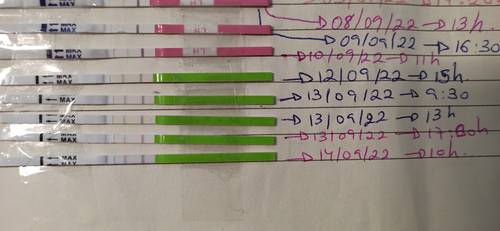 MAX H7 → 08/09/22 → 13h
MAX H7 → 09/09/22 → 16:30
MAX → 10/09/22 → 11h
MAX → 12/09/22 → 15h
MAX → 13/09/22 → 9:30
MAX → 13/09/22 → 13h
MAX → 13/09/22 → 17:30h
MAX → 14/09/22 → 10h